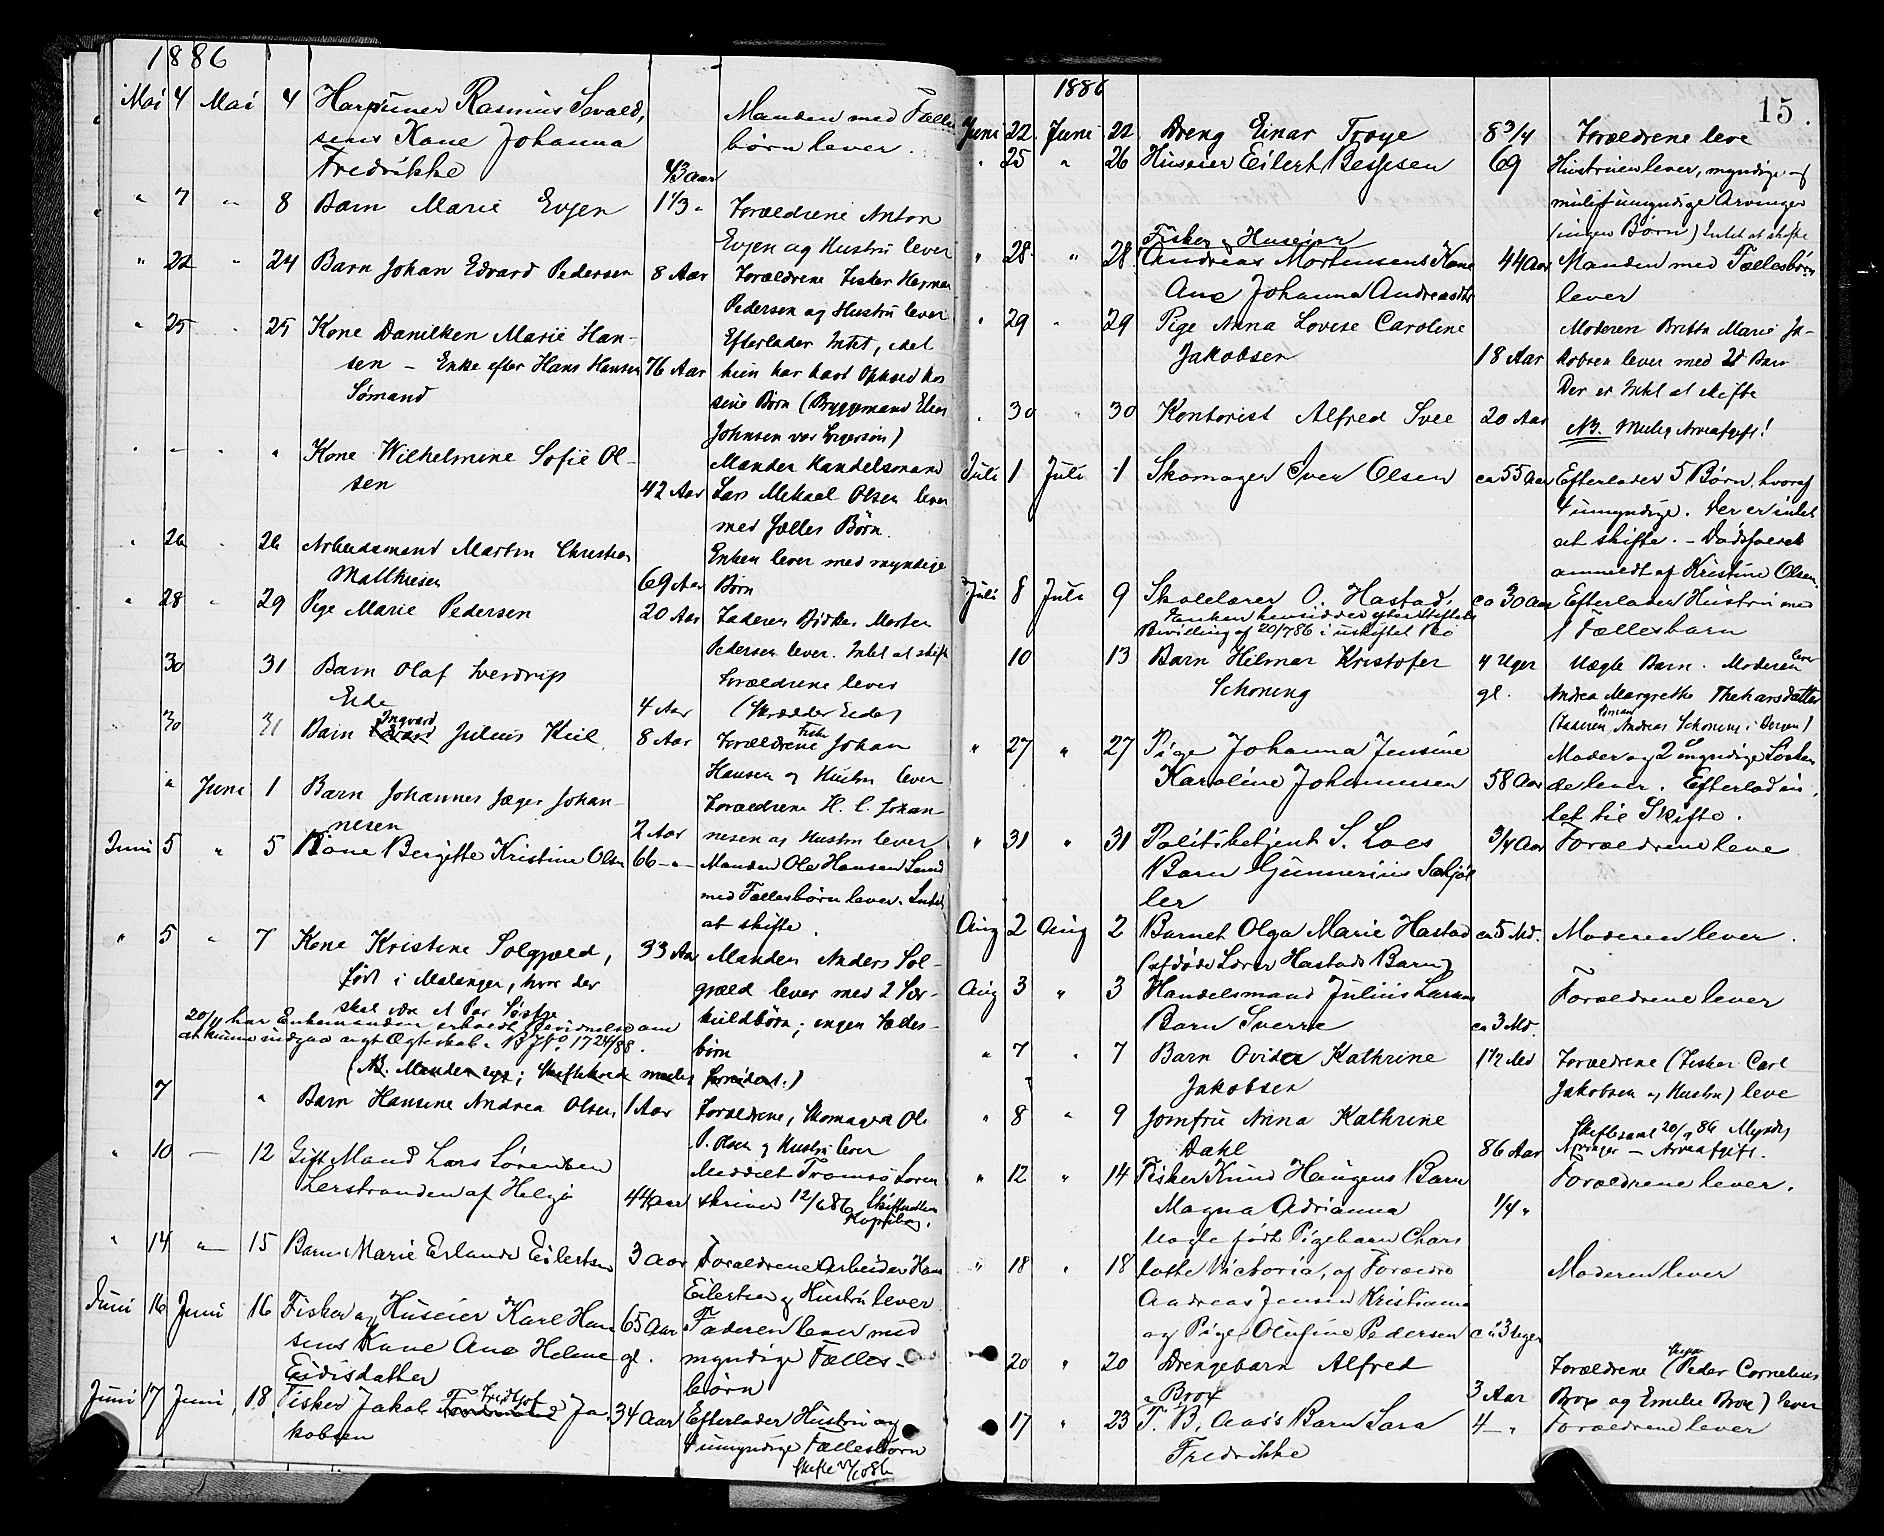 1886
Mai 4 Mai 4 Harpuner Rasmus Sevald,
sens Kone Johanna
Fredrikke 43 Aar
Manden med Fælles
børn lever.
" 7 " 8 Barn Marie Evjen 1 1/3 "
Forældrene Anton
Evjen og Hustru lever
" 22 " 24 Barn Johan Edvard Pedersen 8 Aar
Forældrene Fisker
Pedersen og Hustru lever
" 25 " 25 Kone Danilken Marie Han-
sen - Enke efter Hans Hansen 76 Aar
Sømand
Efterlader Intet, idet
hun har havt Ophold hos
sine Børn (Bryggemand
Johnsen var Svigersøn)
" - " " Kone Wilhelmine Sofie Ol-
sen 42 Aar
Manden Handelsmand
Lars Mekael Olsen lever
med Fælles Børn.
" 26 " 26 Arbeidsmand Martin Christian
Mathiesen 69 Aar
Enken lever med myndige
Børn
" 28 " 29 Pige Marie Pedersen 20 Aar
Faderen Morten
Pedersen lever. Intet at skifte
30 31 Barn Olaf Sverdrup
Eide 4 Aar
Forældrene lever
(Skrædder Eide)
30 31 Barn Ingvard Julius Kiil 8 Aar
Forældrene Fisker Johan
Hansen og Hustru lever
" Juni 1 Barn Johannes Jæger Johan-
nesen 2 Aar
Forældrene H. C. Johan
nesen og Hustru lever
Juni 5 " 5 Kone Bergitte Kristine Olsen 66 - " -
Manden Ole Hansen Lund
med Fællesbørn lever. Intet
at skifte.
" 5 " 7 Kone Kristine Solgjæld, 33 Aar
født i Malangen, hvor der
skal være et Par Søstre
Manden Anders Sol-
gjæld lever med 2 Sær-
kuldbørn; ingen Fælles-
børn
20/11 har Enkemanden erholdt Bevidnelse om
at kunne indgaa nyt Ægteskab. BJNo. 1724/88.
(NB. Manden syg; Skiftekrede
7 " Barn Hansine Andrea Olsen, 1 Aar
Forældrene, Skomager Ole
P. Olsen og Hustru lever
" 10 - 12 Gift Mand Lars Sørensen
Lerstranden af Helgø 44 Aar
Meddelt Tromsø Soren
skriver 12/6 86
" 14 " 15 Barn Marie Erlande Eilertsen 3 Aar
Forældrene Arbeider Hans
Eilertsen og Hustru lever
Juni 16 Juni 16 Fisker og Huseier Karl Han
sens Kone Ane Helene
Eidisdatter 65 Aar gl.
Faderen lever med
myndige Fælles-
børn
Juni 17 Juni 18 Fisker Jakob Fridtjof Ja-
kobsen 34 Aar
Efterlader Hustru og
4 umyndige Fællesbørn
15.
1886
Juni 22 Juni 22 Dreng Einar Troye 8 3/4
Forældrene leve
" 25 " 26 Huseier Eilert Bessesen 69
Hustruen lever, myndige og
umyndige Arvinger
(ingen Børn) Intet at skifte
" 28 " 28 Fisker og Huseier
Andreas Mortensens Kone 44 Aar
Ane Johanna Andreasdtr
Manden med Fællesbørn
lever
" 29 " 29 Pige Anna Lovise Caroline
Jakobsen 18 Aar
Moderen Britta Marie Ja-
kobsen lever med Barn
Der er Intet at skifte
" 30 " 30 Kontorist Alfred Svee 20 Aar
NB. Mulig Arveafgift!
Juli 1 Juli 1 Skomager Iver Olsen ca 55 Aar
Efterlader 5 Børn, hvoraf
4 umyndige. Der er intet
at skifte. - Dødsfaldet
anmeldt af Kristine Olsen.
Juli 8 Juli 9 Skolelærer O. Hastad, ca 30 Aar
Enken hensidder efter Skifterets
Bevilling af 20/7 86 i uskiftet Bo
Efterlader Hustru med
1 Fællesbarn
10 13 Barn Hilmar Kristofer
Schoning 4 Uger gl.
Uægte Barn. Moderen lever
Andrea Margrethe
(Faderen Andreas Schoning i Bergen)
" 27 " 27 Pige Johanna Jensine
Karoline Johannesen 58 Aar
Moder og 2 myndige Søsken
de lever. Efterlod in,
tet til Skifte.
" 31 " 31 Politibetjent S. Loes 3/4 Aar
Barn Gunnerius Schjøl
ler
Forældrene leve
Aug 2 Aug 2 Barnet Olga Marie Hastad ca 5 Md.
(afdøde Lærer Hastads Barn)
Moderen lever.
Aug 3 " 3 Handelsmand Julius Larsens
Barn Sverre ca 3 Md.
Forældrene lever
" 7 " 7 Barn Ovidea Kathrine 1 1/2 Md
Jakobsen
Forældrene (Fisker Carl
Jakobsen og Hustru) leve
" 8 " 9 Jomfru Anna Kathrine
Dahl 86 Aar
Skiftesaml 20/9 86 Myndig
Arvinger - Arveafgift.
" 12 " 14 Fisker Knud Haugens Barn
Magna Adrianna 1/4 "
Forældrene lever.
" 18 " 18 Uægte født Pigebarn Char-
lotte Victoria, af Forældre
Andreas Jensen Kristiania
og Pige Olufine Pedersen ca 3 Uger
Moderen lever
20 " 20 Drengebarn Alfred
Brox 3 Aar
Forældrene (Peder Cornelius
Brox og Emilie Brox) lever
17 " 23 T. B. Aas's Barn Sara 4 - "
Fredrikke
Forældrene lever